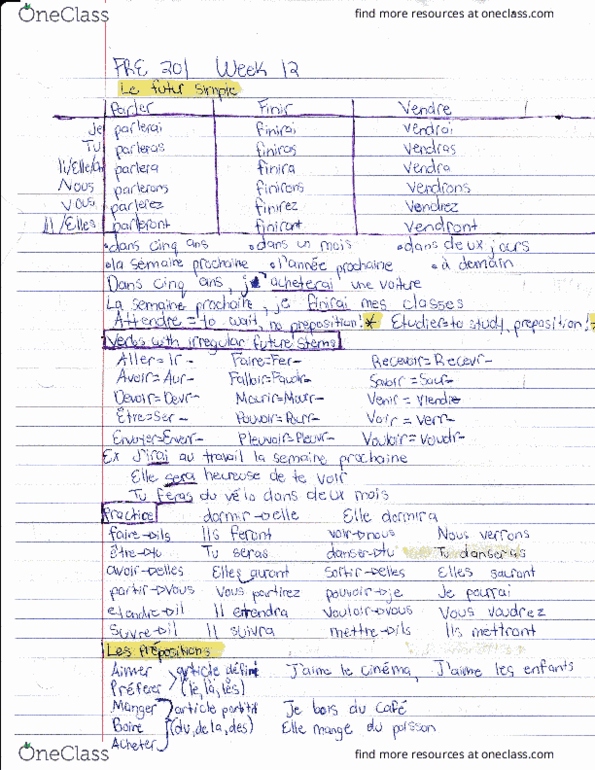 OneClass find more resources at oneclass.com
FRE 201 Week 12
Le futur simple
Parler Finir Vendre
Je parlerai finirai vendrai
Tu parleras finiras vendras
Il/Elle/On parlera finira vendra
Nous parlerons finirons vendrons
Vous parlerez finirez vendrez
Il/Elles parleront finiront vendront
•dans cinq ans •dans un mois •dans deux jours
•la semaine prochaine •l'année prochaine •à demain
Dans cinq ans, j'acheterai une voiture
La semaine prochaine, je finirai mes classes
Attendre = to wait, no preposition!* Etudier=to study, preposition!*
Verbs with irregular future stems
Aller = Ir- Faire=Fer- Recevoir=Recevr-
Avoir= Aur- Falloir=Faudr- Savoir = Saur-
Devoir=Devr- Mourir=Mourr- Venir = Viendr-
Être=Ser- Pouvoir=Pourr- Voir = Verr-
Envoyer=Enverr- Pleuvoir=Pleuvr- Vouloir=Voudr-
Ex J'irai au travail la semaine prochaine
Elle sera heureuse de te voir
Tu feras du vélo dans deux mois
Practice dormir→elle Elle dormira
faire→ils Ils feront voir→nous Nous verrons
être→tu Tu seras danser→tu Tu danseras
avoir→elles Elles auront Sortir→elles Elles sauront
partir→vous Vous partirez pouvoir→je Je pourrai
etandre→il Il etendra Vouloir→vous Vous voudrez
Suivre→il Il suivra mettre→ils Ils mettront
Les Prépositions
Aimer article défini J'aime le cinéma, J'aime les enfants
Préférer (le, la, les)
Manger article partitif Je bois du café
Boire (du, de la, des) Elle mange du poisson
Acheter
OneClass find more resources at oneclass.com